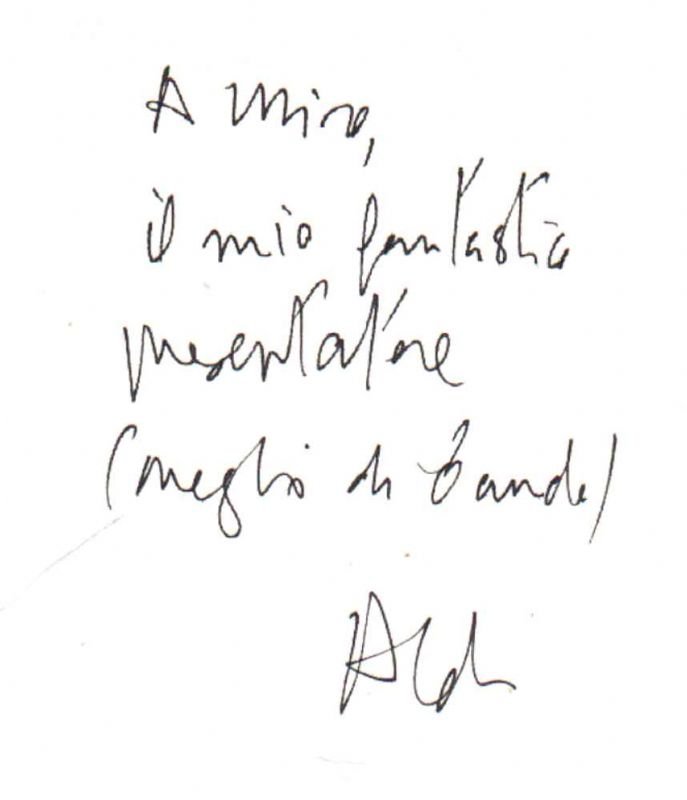 A Miro,
il mio fantastico
presentatore
(meglio di
Aldo